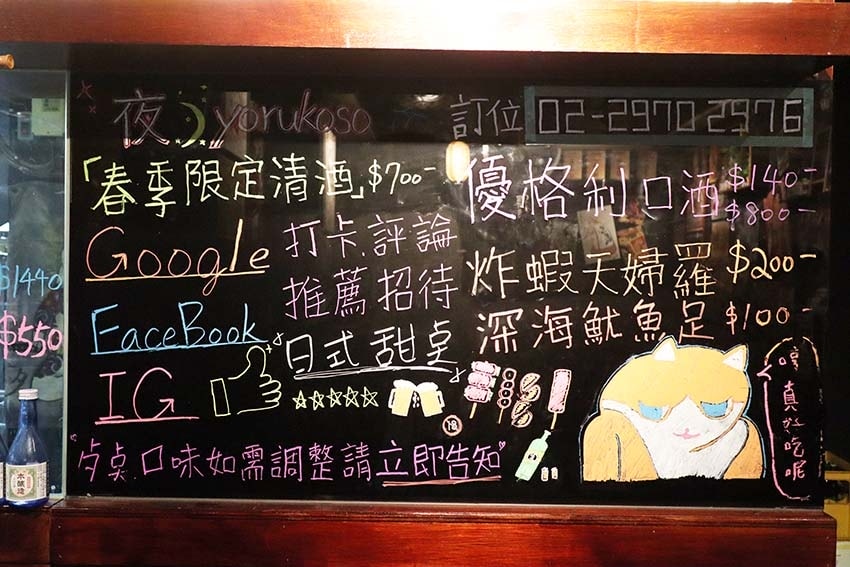 夜 yorukoso
訂位 02-2970 2976
「春季限定清酒」$700-
優格利口酒 $140-
$800-
Google
打卡.評論
推薦招待
日式甜点
FaceBook
IG
炸蝦天婦羅 $200-
深海魷魚足 $100-
$1440
$550
口味如需調整請立即告知
真好吃呢
本醸造